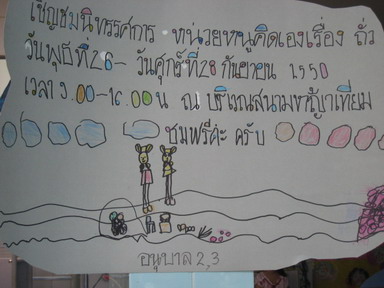 เชิญชมนิทรรศการ หน่วยหนูคิดเองเรื่อง ถั่ว
วันพุธที่26- วันศุกร์ที่28 กันยายน 2550
เวลา 9.00-16.00 น ณ บริเวณสนามหญ้าเทียม
ชมฟรีค่ะ ครับ
อนุบาล 2,3